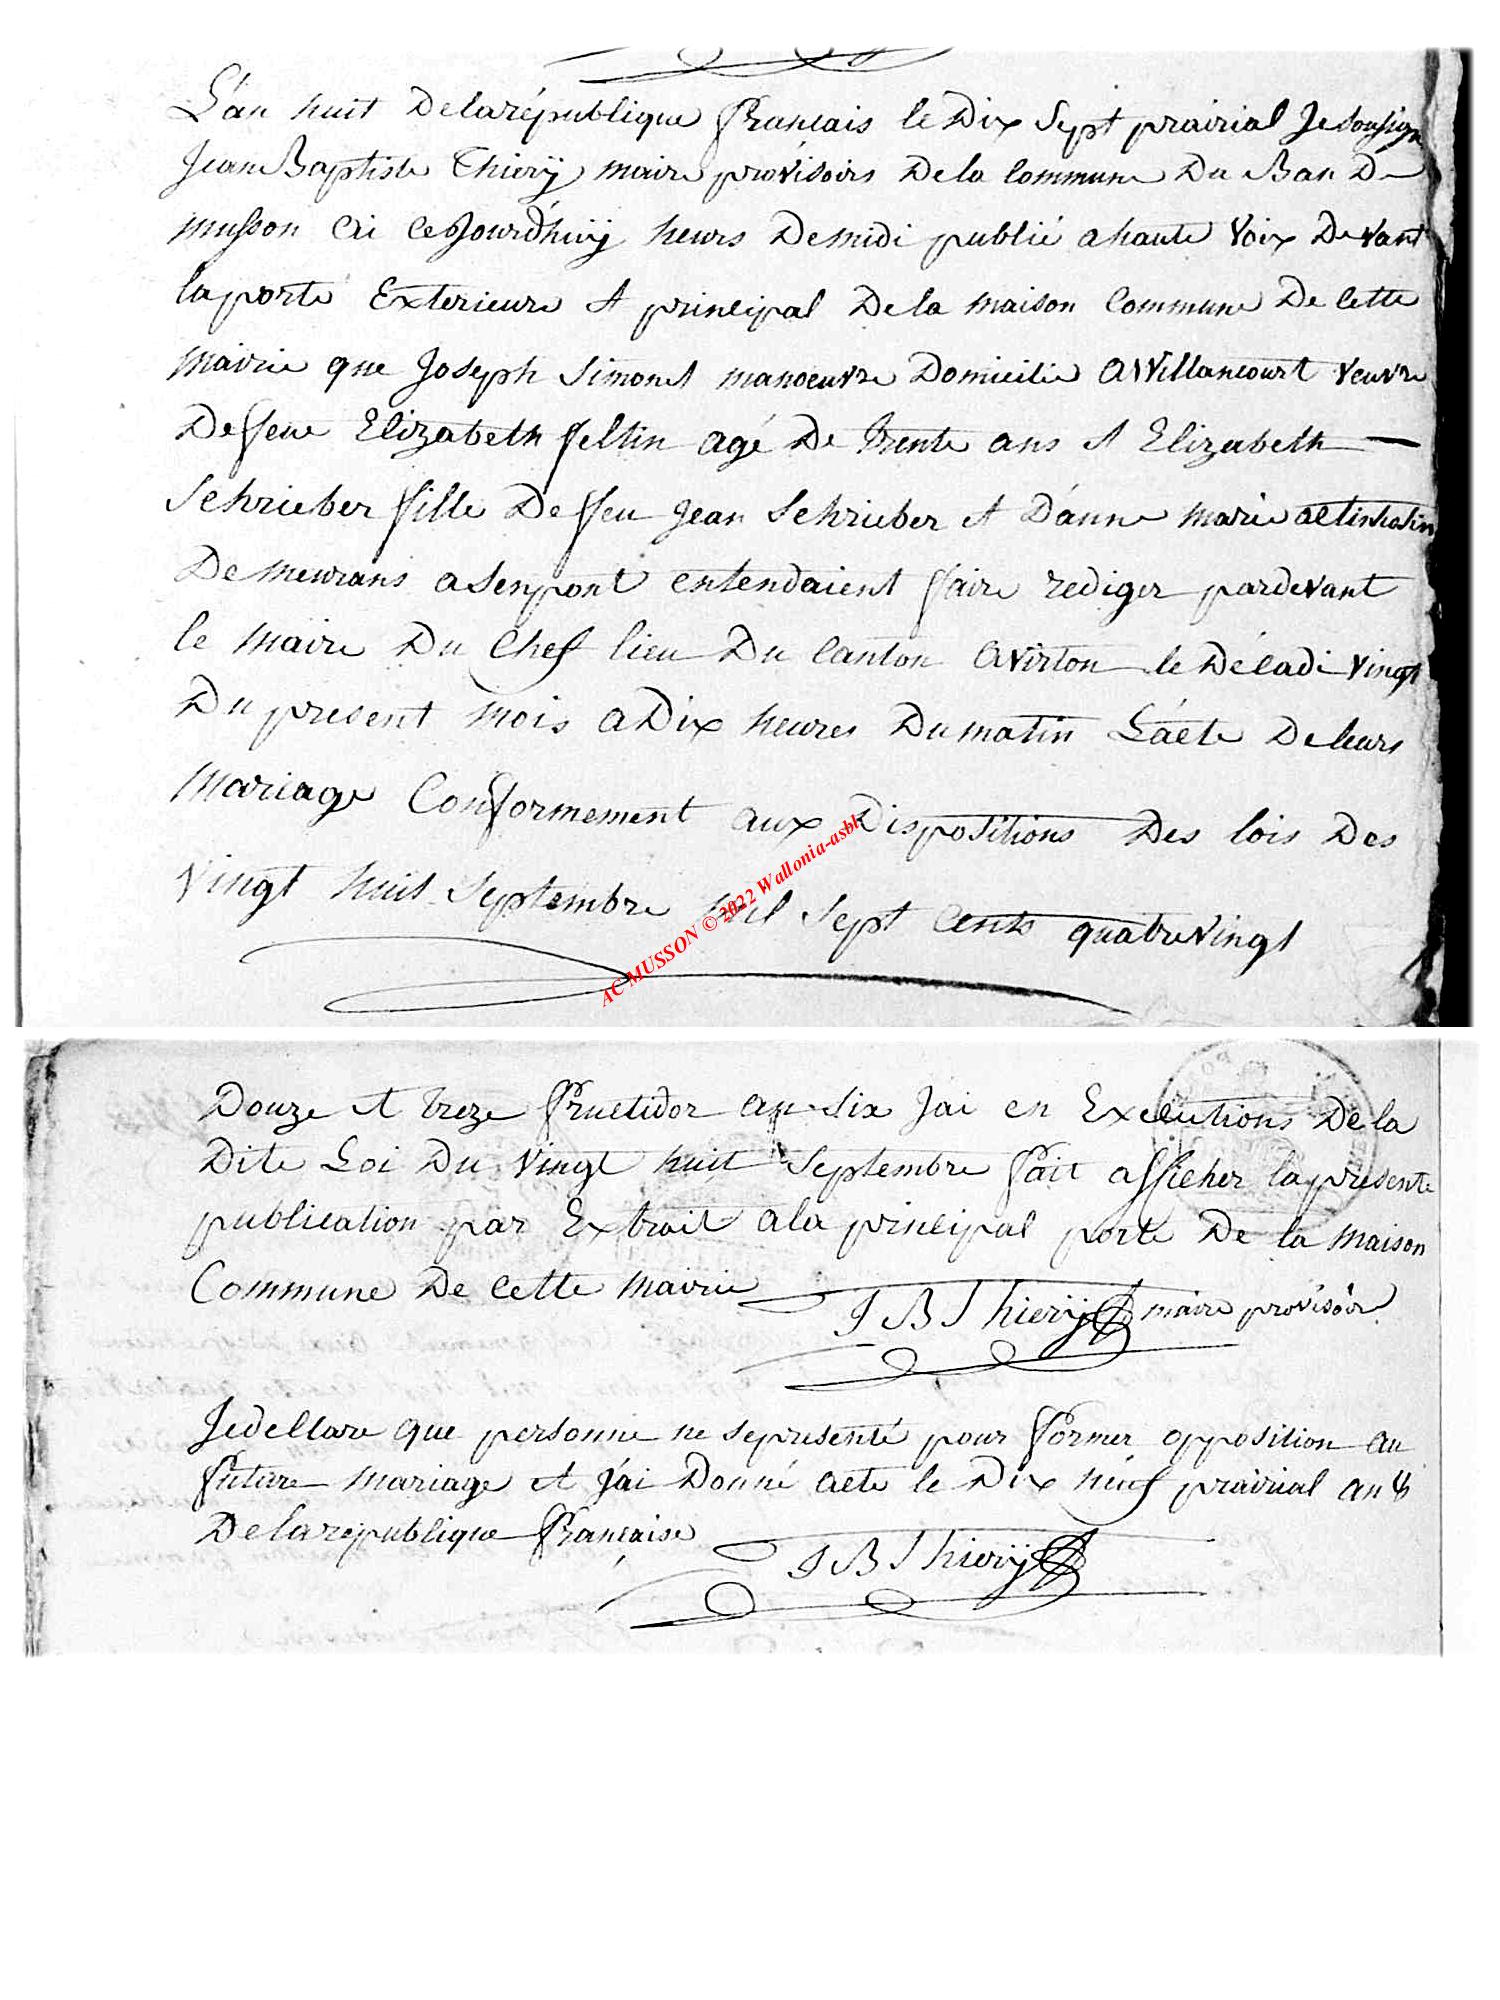 L'an huit De la république francais le Dix Sept prairial Je Sousigné
Jean Baptiste Thierÿ maire provisoirs De la Commune Du Ban De
musson ai ce Jourd'huÿ heurs De midi publié a haute voix Devant
la porte Exterieure et principal De la maison Commune De cette
mairie que Joseph Simonet manoeuvre Domicilie a Willancourt veuvre
De feue Elizabeth feltin agé De Trente ans et Elizabeth —
Schrieber fille De feu Jean Schrieber et D'anne marie
Demeurans a Senpont entendaient faire rediger pardevant
le maire Du Chef lieu Du Canton a virton le Décadi vingt
Du present mois a Dix heures Du matin L'acte De leurs
mariage Conformement aux Dispositions Des lois Des
vingt huit Septembre mil Sept cents quatrevingt
AC MUSSON © 2022 Wallonia-asbl
Douze et treze fructidor an Six Jai en Executions De la
Dite Loi Du vingt huit Septembre fait afficher la presente
publication par Extrait a la principal porte De la maison
Commune De cette mairie
J B Thierÿ maire provisoir
Je declare que personne ne se presenté pour former opposition au
future mariage et j'ai Donné acte le Dix neuf prairial an 8
De la republique francaise
J B Thierÿ